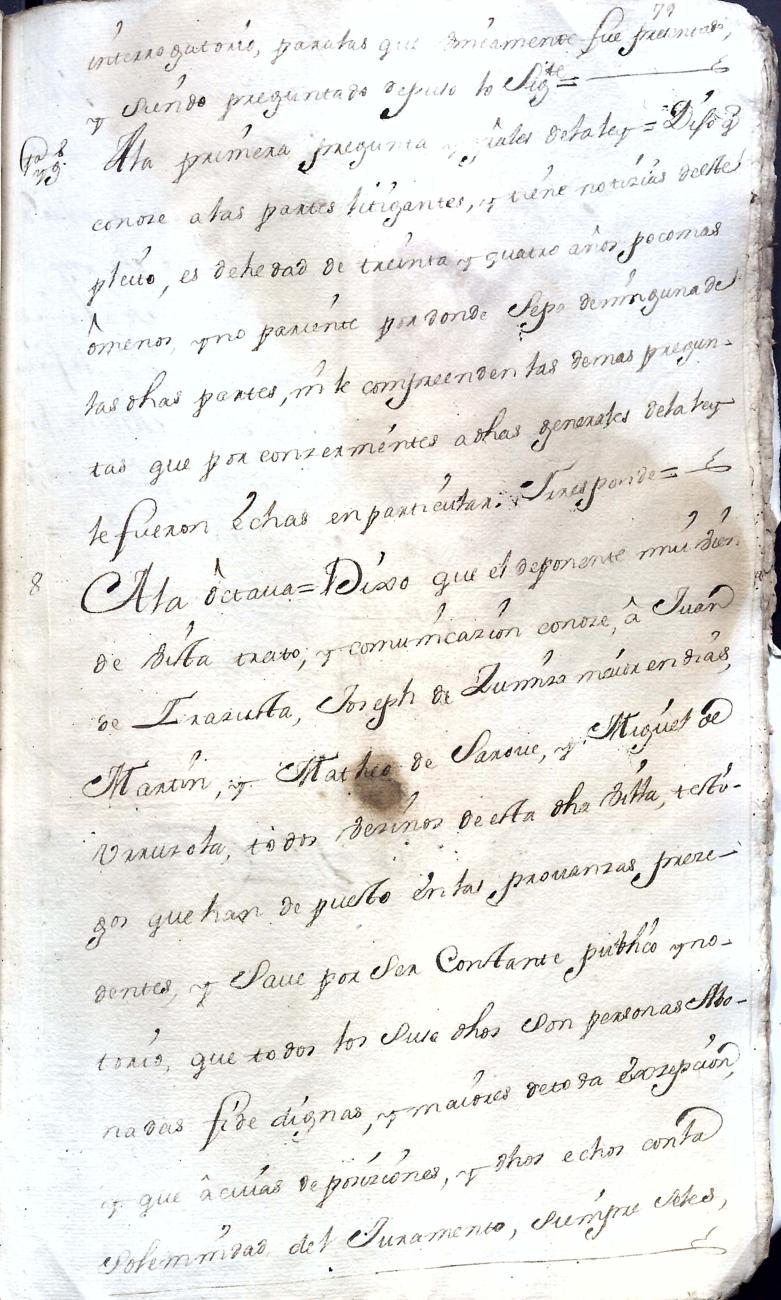 79
interrogatorio, paralas que unicamente fue presentado,
y siendo preguntado depuso lo Sigte =
Ala primera pregunta y grâles delaley = Dixo q
conoze alas partes litigantes, y tiene notizias deeste
pleito, es dehedad de treinta y quatro años, pocomas
ômenos, yno pariente por donde Sepa deninguna de
las dhas partes, ni le compreenden las demas pregun-
tas que por conzernientes adhas generales delaley
le fueron échas enparticular. Yresponde =
8
Ala ôctava = Dixo que el deponente mui bien
de vista trato, y comunicazion conoze, â Juan
de Irazusta, Joseph de Zumiza maior en dias,
Martin, y Matheo de Sarove, y Miguel de
Urruzola, todos vezinos de esta dha villa, testi-
gos que han depuesto en las provanzas preze-
dentes, y Save por Ser Constante publico yno-
torio, que todos los Suso dhos Son personas Abo-
nadas fide dignas, y maiores detoda éxzepcion,
y que âcuias deposiziones, y dhos echos conla
Solemnidad del Juramento, siempre Seles,